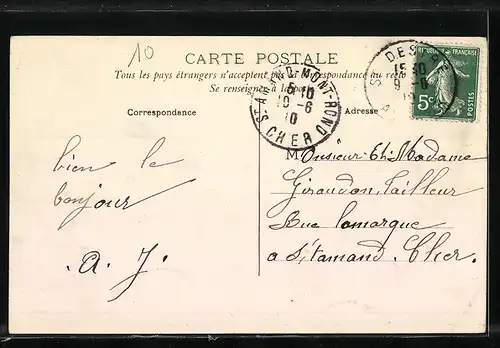 10
CARTE POSTALE
Tous les pays étrangers n'acceptent pas la correspondance au recto
Se renseigner à la poste
Correspondance
Adresse
ST AMAND-MONT-ROND
15 10
10-6
10
CHER
15 10
RÉPUBLIQUE FRANÇAISE
5c
POSTES
bien le
bonjour
A. J.
Monsieur Et Madame
Giraudon, Tailleur
Rue Lamarque
a St Amand. Cher.